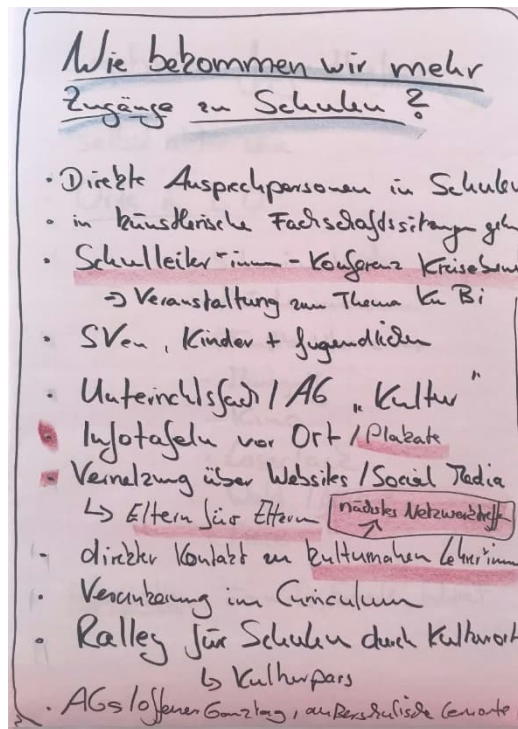 Wie bekommen wir mehr
Zugänge zu Schulen?
· Direkte Ansprechpersonen in Schulen
· in künstlerische Fachschaftssitzungen gehn
· Schulleiter*innen-Konferenz Kreisebene
→ Veranstaltung zum Thema KuBi
· SVen, Kinder + Jugendlichen
· Unterrichtsfach / AG „Kultur"
· Infotafeln vor Ort / Plakate
· Vernetzung über Websites / Social Media
↳ Eltern für Eltern
nächstes Netzwerktreff
· direkter Kontakt zu kulturnahen Lehrer*innen
· Verankerung im Curriculum
· Ralley für Schulen durch Kulturort
↳ Kulturpass
· AGs / offener Ganztag, außerschulische Lernorte